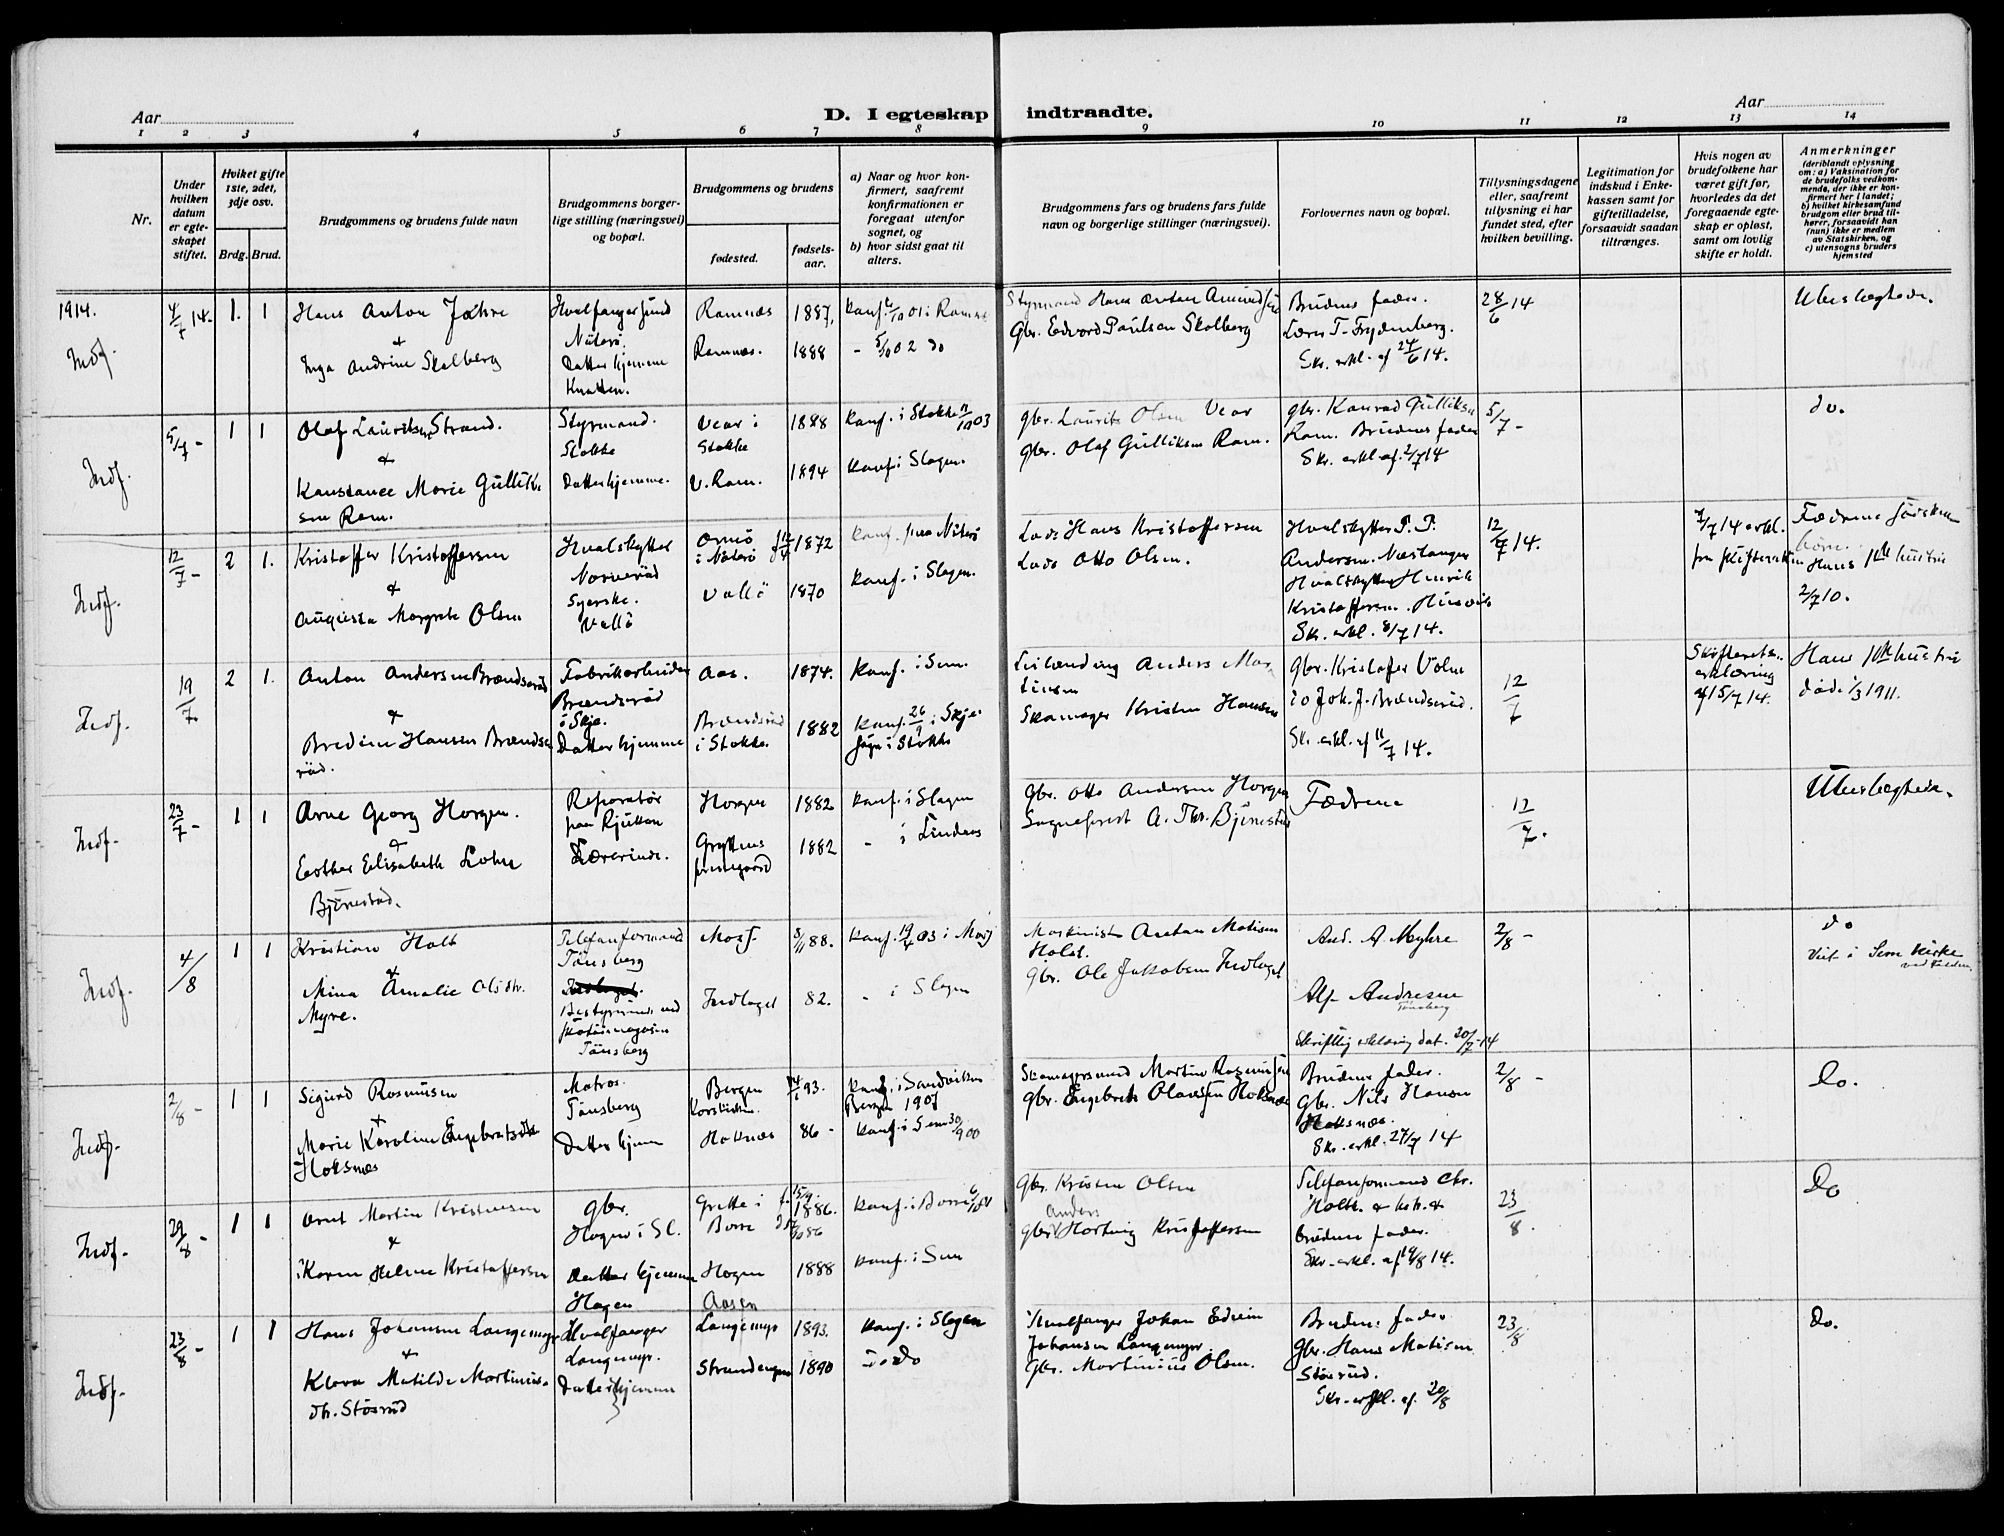 D. I egteskap indtraadte.
Aar
Aar
1 2 3 4 5 6 7 8 9 10 11 12 13 14
Nr.
Under hvilken datum er egteskapet stiftet.
Hvilket gifte 1ste, 2det, 3dje osv.
Brdg. Brud.
Brudgommens og brudens fulde navn
Brudgommens borgerlige stilling (næringsvei) og bopæl.
Brudgommens og brudens
fødested.
fødselsaar.
a) Naar og hvor konfirmert, saafremt konfirmationen er foregaat utenfor sognet, og
b) hvor sidst gaat til alters.
Brudgommens fars og brudens fars fulde navn og borgerlige stillinger (næringsvei).
Forlovernes navn og bopæl.
Tillysningsdagene eller, saafremt tillysning ei har fundet sted, efter hvilken bevilling.
Legitimation for indskud i Enkekassen samt for giftetilladelse, forsaavidt saadan tiltrænges.
Hvis nogen av brudefolkene har været gift før, hvorledes da det foregaaende egteskap er opløst, samt om lovlig skifte er holdt.
Anmerkninger
(deriblandt oplysning om: a) Vaksination for de brudefolks vedkommende, der ikke er konfirmert her i landet; b) hvilket kirkesamfund brudgom eller brud tilhører, forsaavidt han (hun) ikke er medlem av Statskirken, og c) utensogns bruders hjemsted
1914.
Indf.
4/7 14.
1. 1
Hans Anton Jahre
+
Inga Andrine Skalberg
Nøterø.
Datter hjemme
Knatten.
Ramnæs 1887,
Ramnæs. 1888
Konf. 6/10 01 i Ramnæs
- 5/10 02 do
Gbr. Edvard Paulsen Skalberg
Brudens fader.
Lærer T. Frydenberg.
Skr. erkl. af 24/6 14.
28/6 14
Ubeslægtede.
Indf.
5/7 -
1 1
Olaf Lauritsen Strand.
+
Konstance Marie Gullik
sen Ram.
Styrmand.
Stokke
Datter hjemme.
Vear i
Stokke
1888
V. Ram. 1894
Konf. i Stokke 11/10 03
Konf. i Slagen.
gbr. Laurits Olsen Vear
gbr. Olaf Gulliksen Ram.
gbr. Konrad Gulliksen
Ram. Brudens fader
Skr. erkl. af. 2/7 14
5/7 -
do.
Indf.
12/7 -
2 1.
Kristoffer Kristoffersen
+
Augusta Margrete Olsen
Hvalskytter
Syerske.
Vallö
i Nøterø
1872
Vallö 1870
Konf. paa Nøterø
Konf. i Slagen.
Lods Hans Kristoffersen
Lods Otto Olsen.
Hvalskytter P. P.
Andersen. Næstangen
Hvalskytter Henrik
Kristoffersen. Husvik
Skr. erkl. 8/7 14.
12/7 14.
7/7 14 erkl.
fra skifteretten
Fædrene søsken
børn.
Hans 1ste hustru
2/7 10.
Indf.
19/7.
2 1.
Anton Andersen Brændsrød
+
Bredine Hansen Brændse
rød.
Fabrikarbeider
Brændsrød
i Skje.
Datter hjemme
Aas. 1874.
Brændsrød
i Stokke.
1882
Konf. i Sem.
Konf. 26/9 i Skje
sogn i Stokke
Anders Mar
tinsen
Skomager Kristen Hansen
Gbr. Kristofer Holm
Joh. J. Brændsrød.
Skr. erkl. af 11/7 14.
12/7
Skifterets
erklæring
af 15/7 14.
Hans 1ste hustru
døde 1/3 1911.
Indf.
23/7 -
1 1
Arne Georg Horgen.
+
Esther Elisabeth Lohne
Bjønestad.
Reparatør
paa Rjukan
Lærerinde.
Horgen 1882
Gryttens
prestegaard
1882
Konf. i Slagen
- i Lindaas
Gbr. Otto Andersen Horgen
Sogneprest A. Thr. Bjønestad
Fædrene
12/7.
Ubeslægtede.
Indf.
4/8
1 1
Kristian Holt
+
Mina Amalie Olsdtr.
Myre.
Telefonformand
Tønsberg
Tønsberg
Moss. 88.
Indlaget 82.
- i Slagen
Maskinist Anton Matisen
Holst.
Gbr. Ole Jakobsen Indlaget
And. A. Myhre
Alf Andresen
Tønsberg
Skriftlig erklæring dat. 20/7-14
2/8 -
do
Viet i Sem Kirke
Indf.
2/8 -
1 1
Sigurd Rasmusen
+
Marie Karoline Engebretsdtr
Hoksnæs
Matros.
Tønsberg
Datter hjem
Bergen
Korskirken.
93.
Hoksnæs 86 -
Konf. i Sandviken
Bergen 1907
Konf. i Sem 30/9 00
Skomagersvend Martin Rasmusen
Gbr. Engebret Olausen Hoksnæs
Brudens fader.
Gbr. Nils Hansen
Hoksnæs.
Skr. erkl. 27/7 14
2/8 -
Do.
Indf.
29/8 -
1 1
Arnt Martin Kristensen
+
Karen Helene Kristoffersen
Gbr.
Hogen i Sl.
Datter hjemme
Hagen
Grette i
Borre
1886.
Hogen
Aasen
1888
Konf. i Borre
Konf. i Sem
Gbr. Kristen Olsen
Anders
gbr. Hartvig Kristoffersen
Telefonformand Chr.
Holt. +
brudens fader.
Skr. erkl. af 19/8 14.
23/8.
Do
Indf.
23/8 -
1 1
Hans Johansen Langemyr
+
Klara Matilde Martinius-
dtr. Støsrud
Hvalfanger
Langemyr.
Datter hjemme
Langemyr 1893.
Strandengen 1890
Konf. i Slagen
- Do
Hvalfanger Johan Edvin
Johansen Langemyr.
Gbr. Martinius Olsen.
Brudens fader
Gbr. Hans Matisen
Støsrud.
Skr. erkl. af. 20/8
23/8
Do.